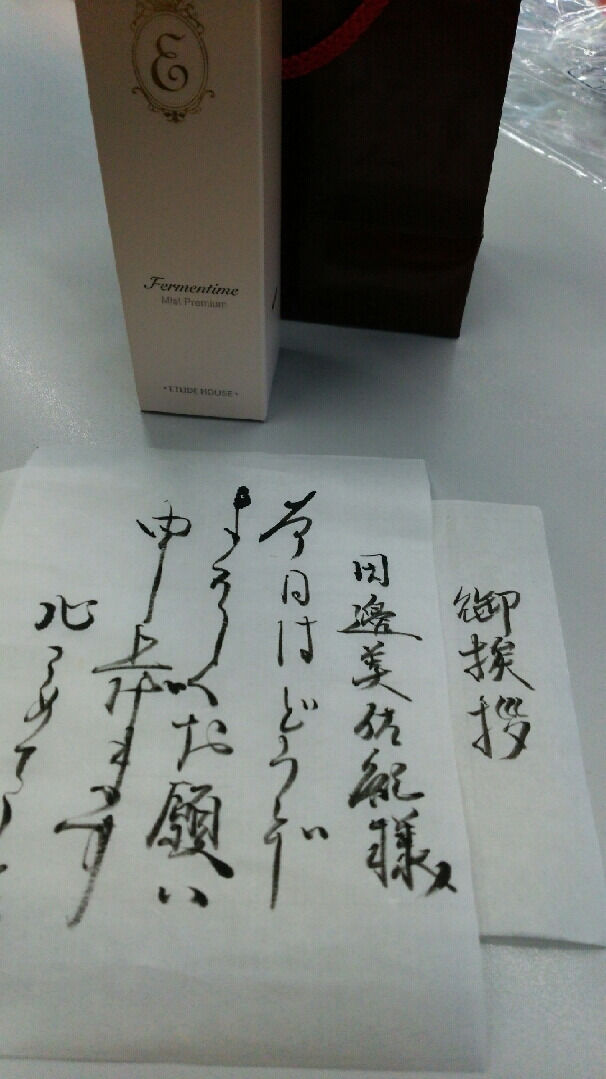 E
Fermentime
Mist Premium
• ETUDE HOUSE •
御挨拶
田邊美佐紀様
今日はどうぞ
よろしくお願い
申し上げます
心こめて